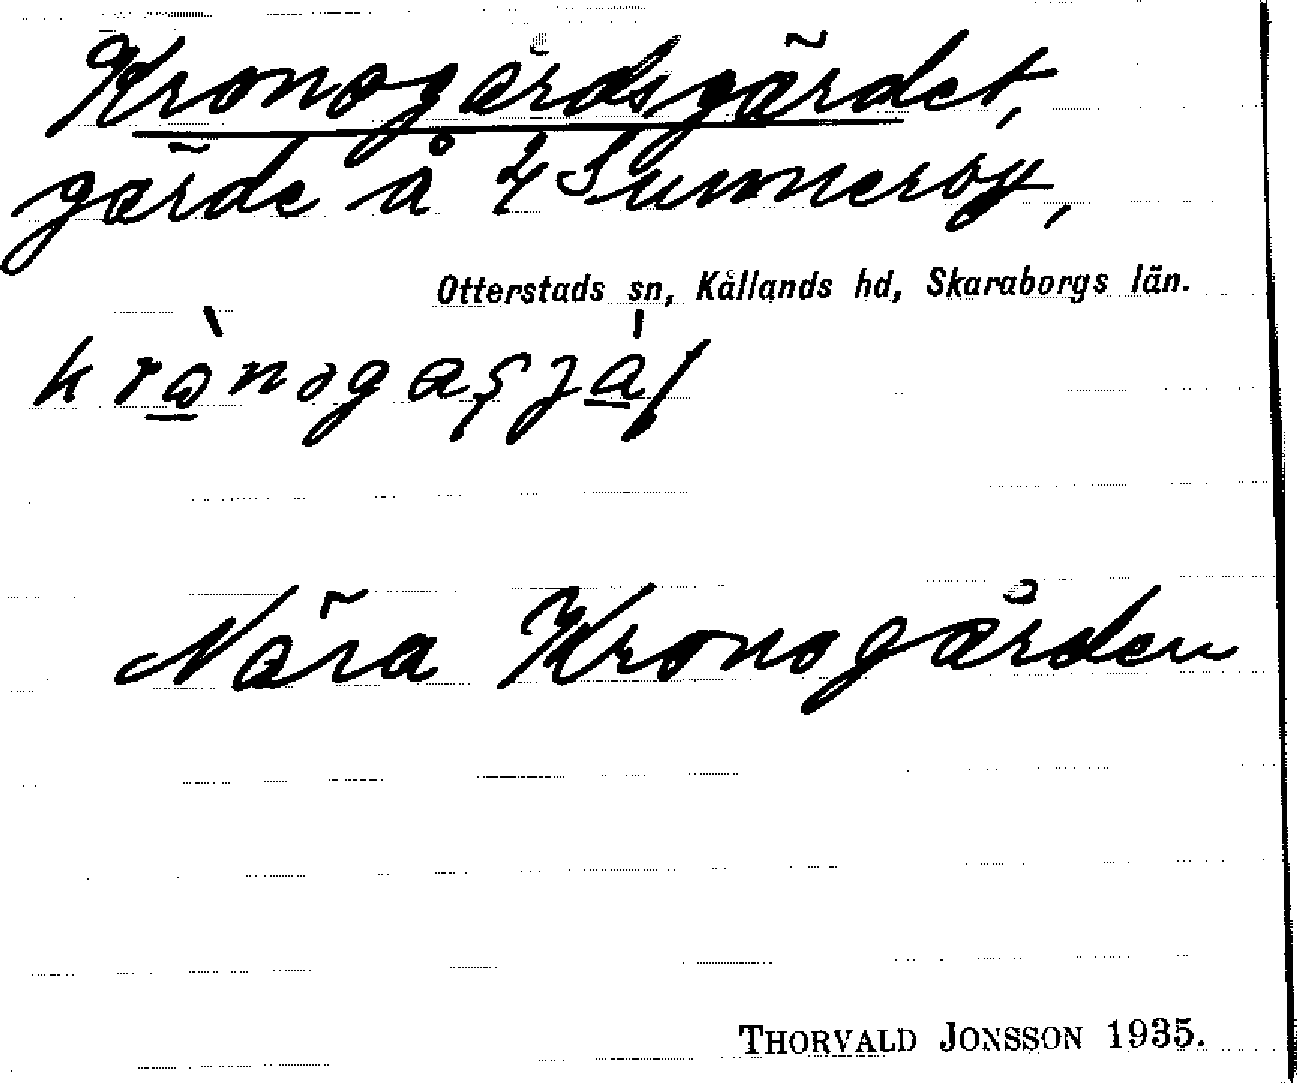 Kronogårdsgärdet,
gärde å 4 Sunnersby,
Otterstads sn, Kållands hd, Skaraborgs län.
Nära Kronogården
THORVALD JONSSON 1935.